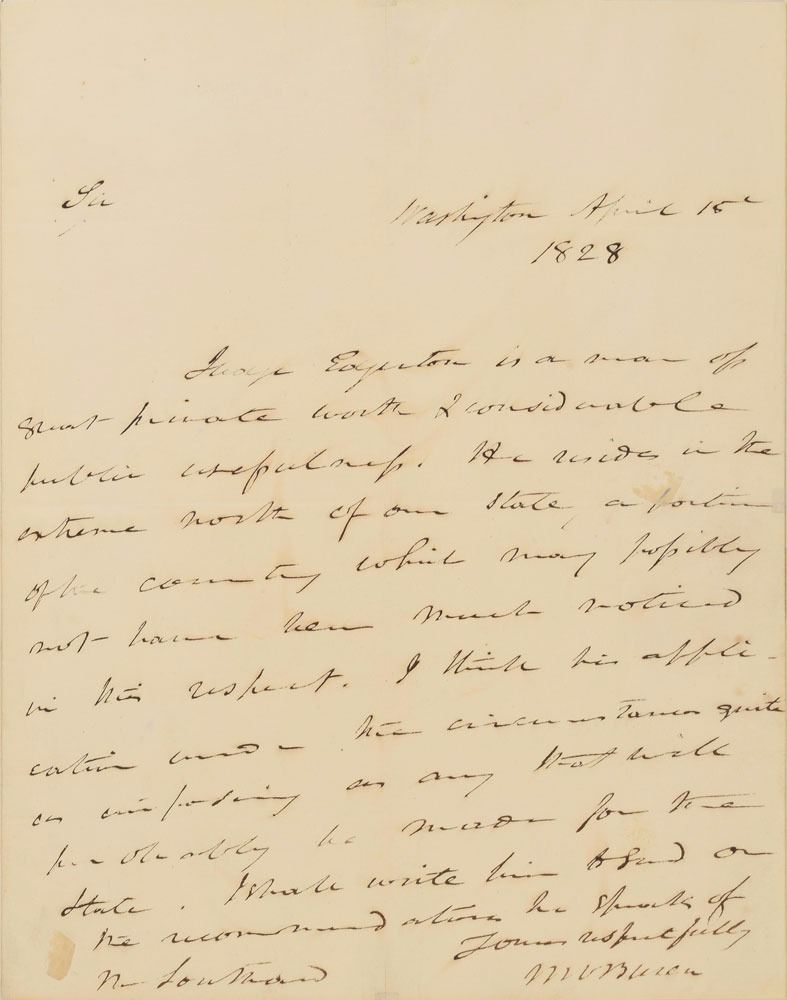 Sir
Washington April 18
1828
Judge Edgerton is a man of
great private worth & considerable
public usefulness. He resides in the
extreme north of our State, a portion
of the country which may possibly
not have been much noticed
in this respect. I think his appli-
cation under the circumstances quite
as imposing as any that will
probably be made for the
State. I shall write him to send on
the recommendations he speaks of
Yours respectfully
Mr Southard
M V Buren